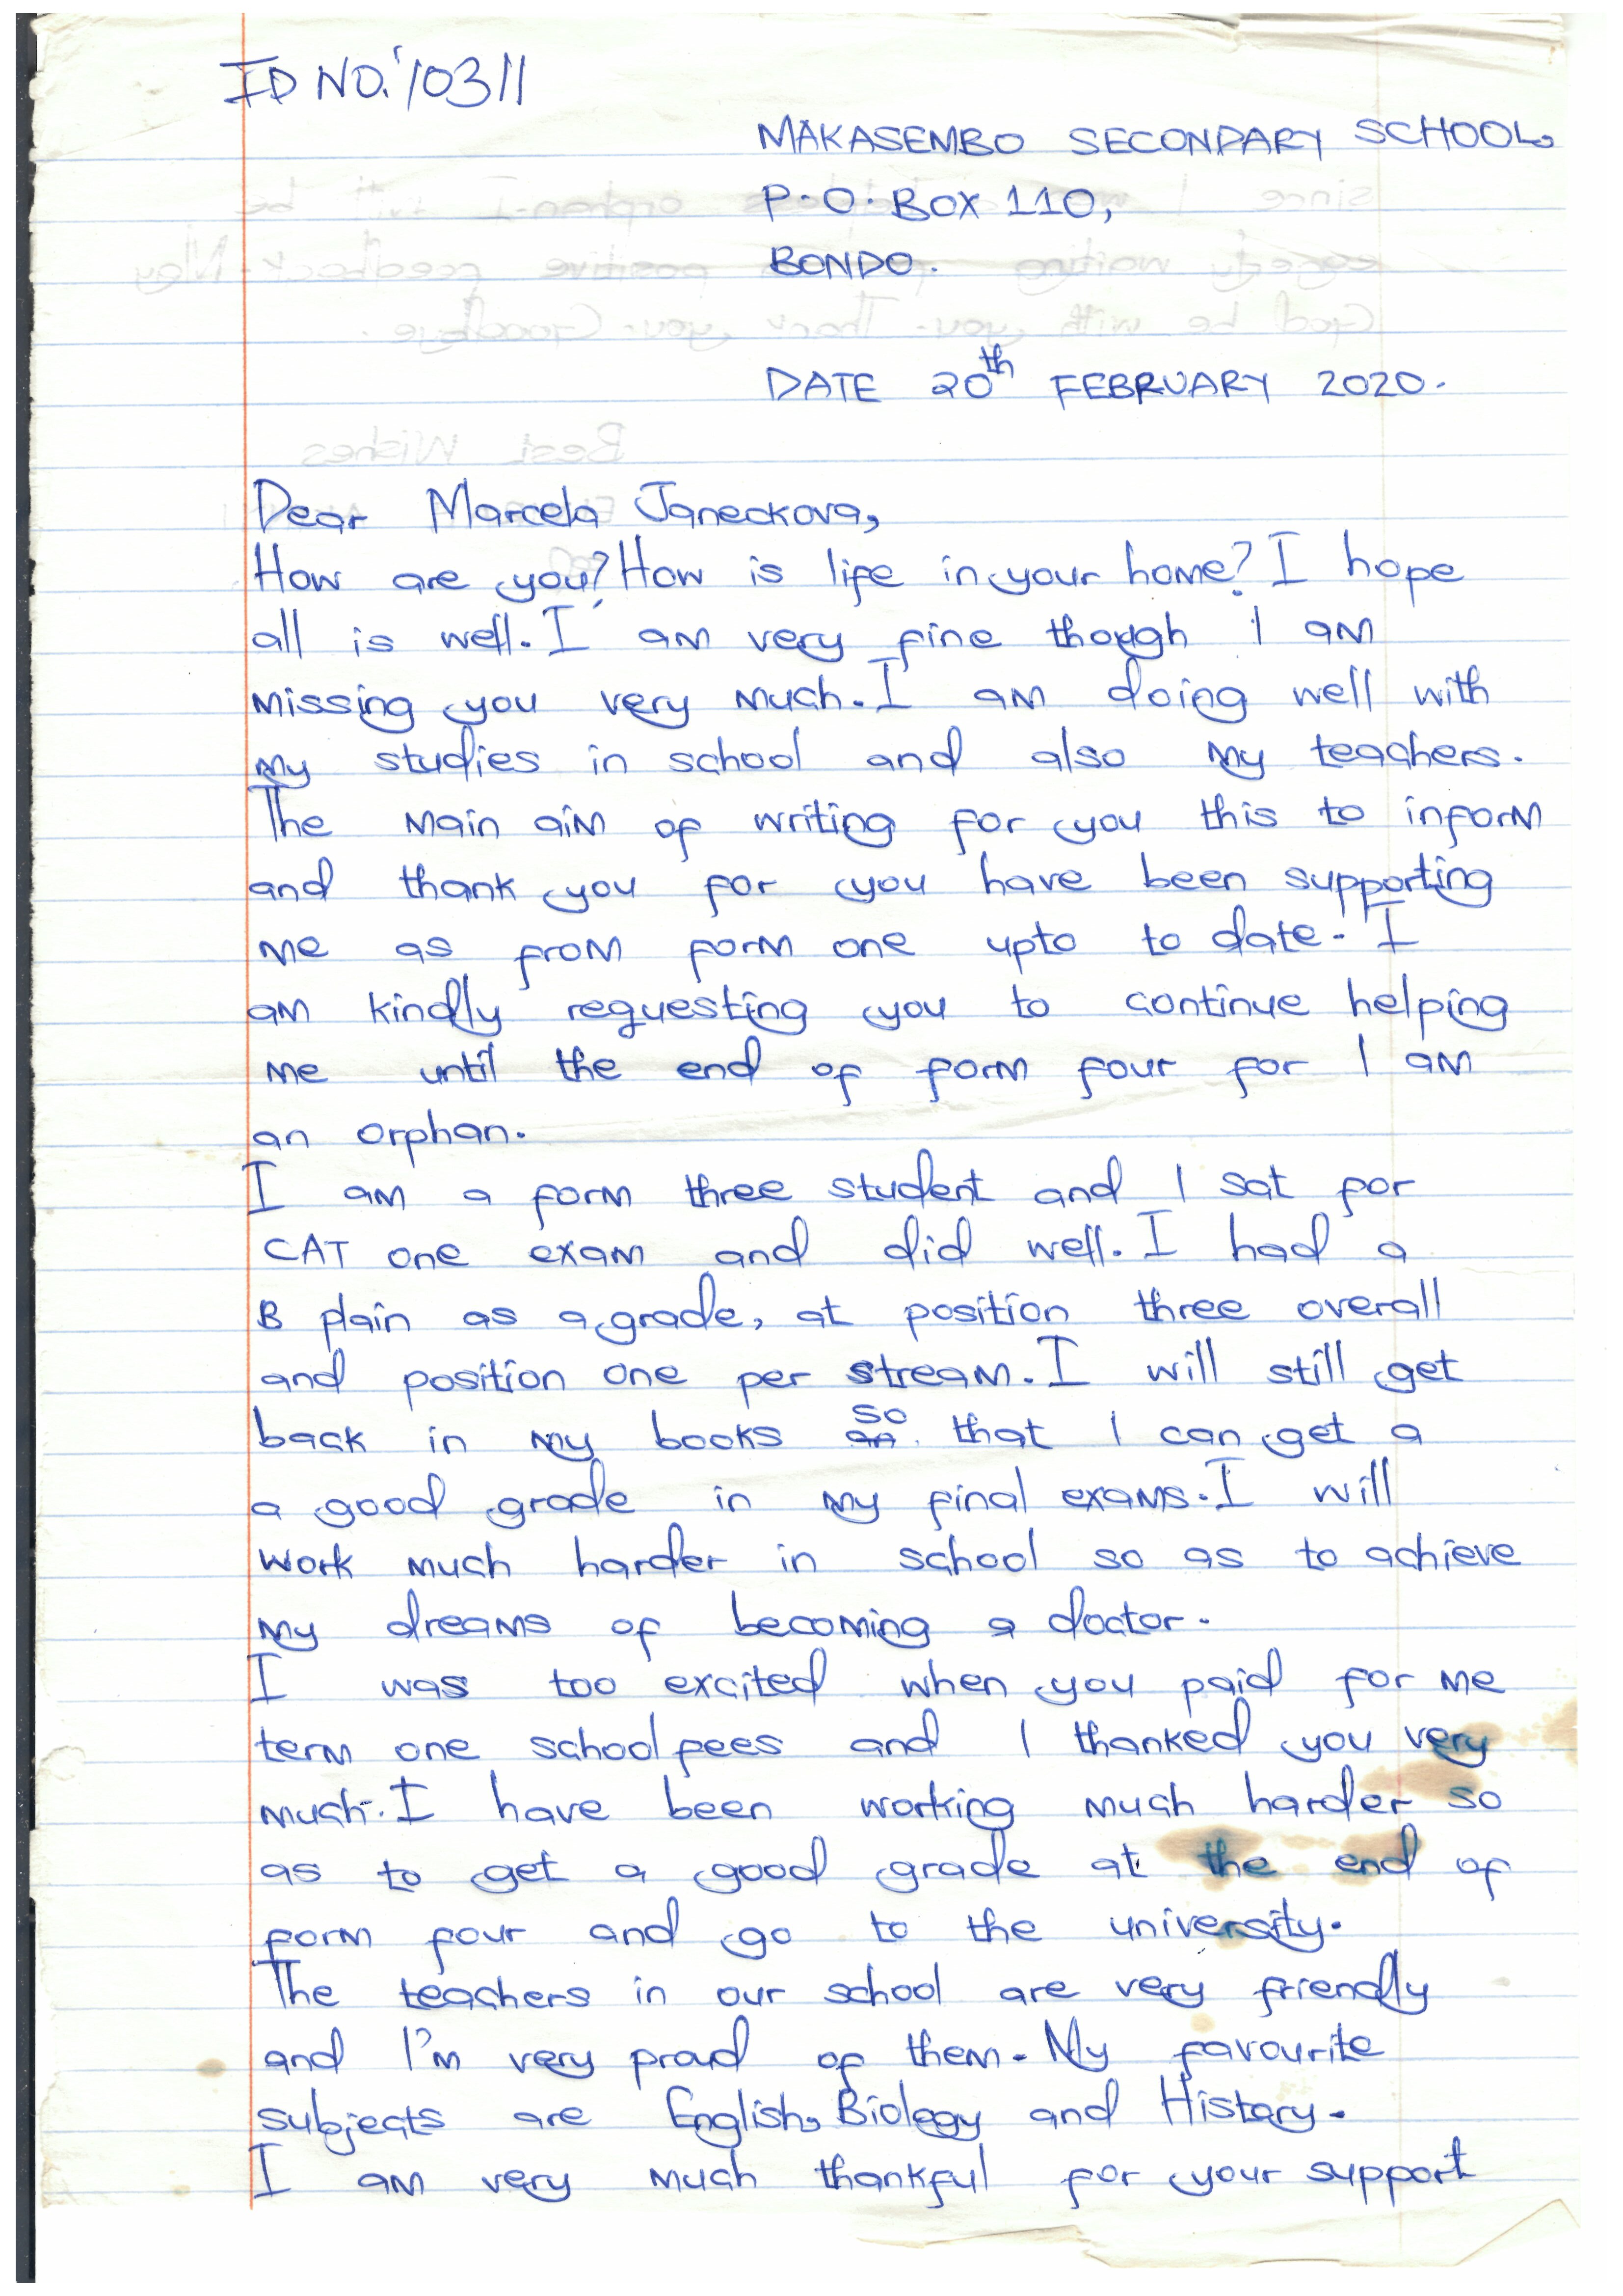 ID NO. 10311
MAKASEMBO SECONDARY SCHOOL,
P.O. BOX 110,
BONDO.
DATE 20th FEBRUARY 2020.
Dear Marcela Janeckova,
How are you? How is life in your home? I hope
all is well. I am very fine though I am
missing you very much. I am doing well with
my studies in school and also my teachers.
The main aim of writing for you this to inform
and thank you for you have been supporting
me as from form one upto to date. I
am kindly requesting you to continue helping
me until the end of form four for I am
an orphan.
I am a form three student and I sat for
CAT one exam and did well. I had a
B plain as a grade, at position three overall
and position one per stream. I will still get
back in my books so that I can get a
a good grade in my final exams. I will
work much harder in school so as to achieve
my dreams of becoming a doctor.
I was too excited when you paid for me
term one school fees and I thanked you very
much. I have been working much harder so
as to get a good grade at the end of
form four and go to the university.
The teachers in our school are very friendly
and I'm very proud of them. My favourite
subjects are English, Biology and History.
I am very much thankful for your support